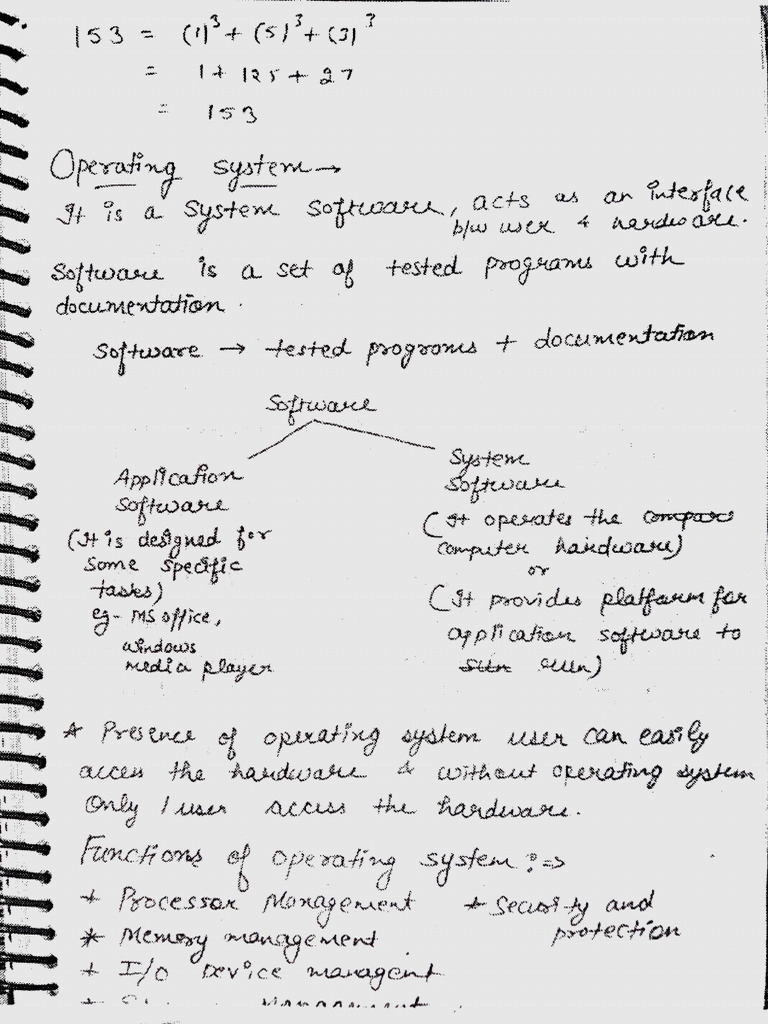 153 = (1)³ + (5)³ + (3)³
= 1 + 125 + 27
= 153
Operating system →
It is a System Software, acts as an interface
b/w user & hardware.
Software is a set of tested programs with
documentation.
Software → tested programs + documentation
Software
Application
Software
(It is designed for
some specific
tasks)
eg- MS office,
windows
media player
System
Software
(It operates the
computer hardware)
or
(It provides platform for
application software to
run)
* Presence of operating system user can easily
access the hardware & without operating system
Only 1 user access the hardware.
Functions of operating system :=>
* Processor Management * Security and
protection
* Memory management
* I/O Device managent
Management